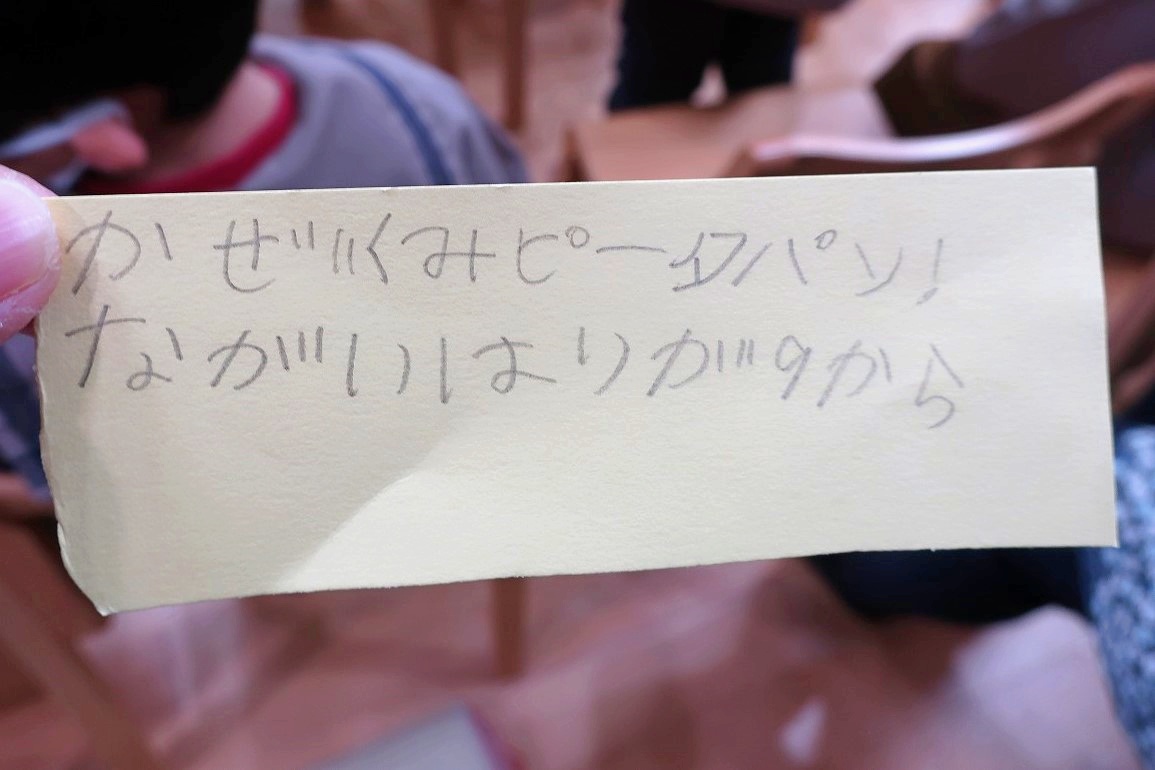 かぜぐみピーターパン!
ながいはりが9から